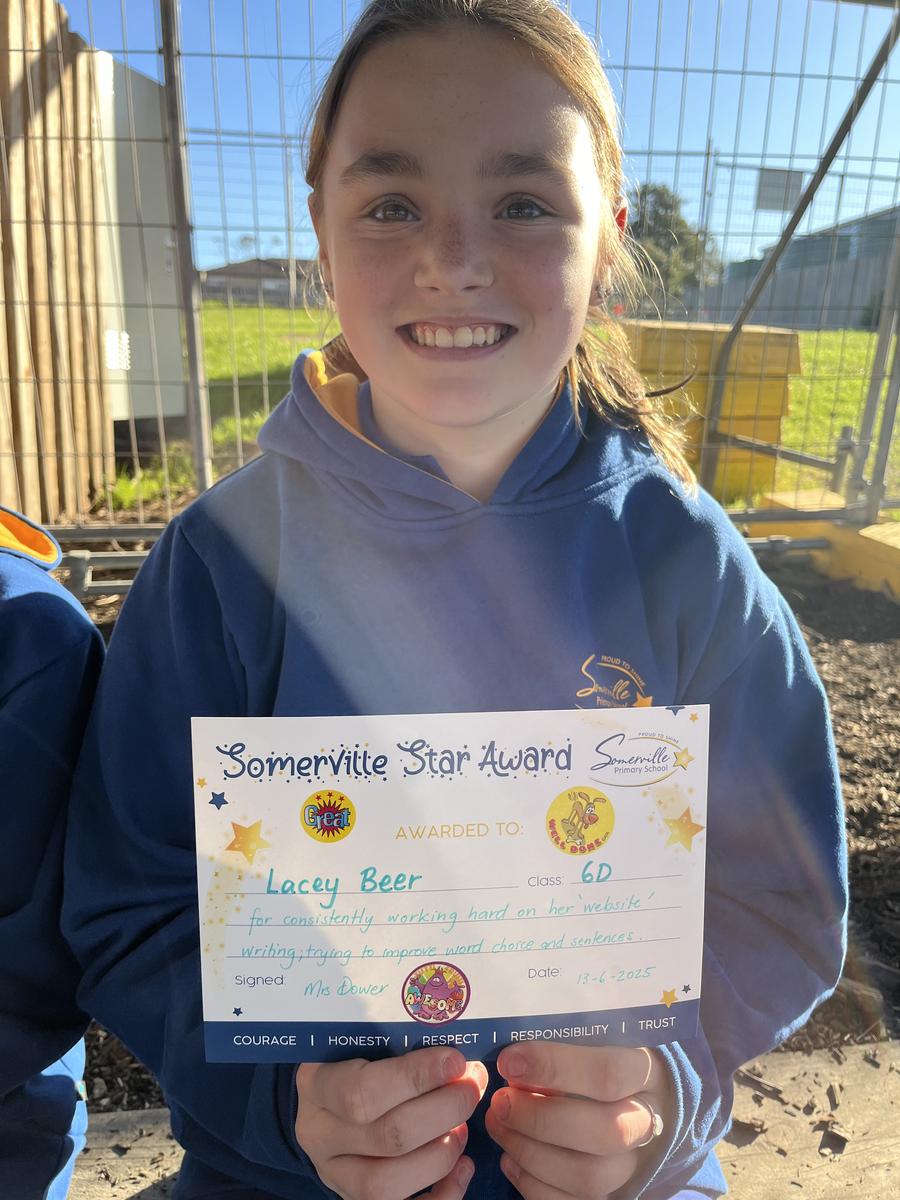 PROUD TO SHINE
Somerville
Primary School
Somerville Star Award
PROUD TO SHINE
Somerville
Primary School
Great
AWARDED TO:
WELL DONE
Lacey Beer Class: 6D
for consistently working hard on her 'website'
writing; trying to improve word choice and sentences.
Signed: Mrs Dower AWESOME Date: 13-6-2025
COURAGE | HONESTY | RESPECT | RESPONSIBILITY | TRUST